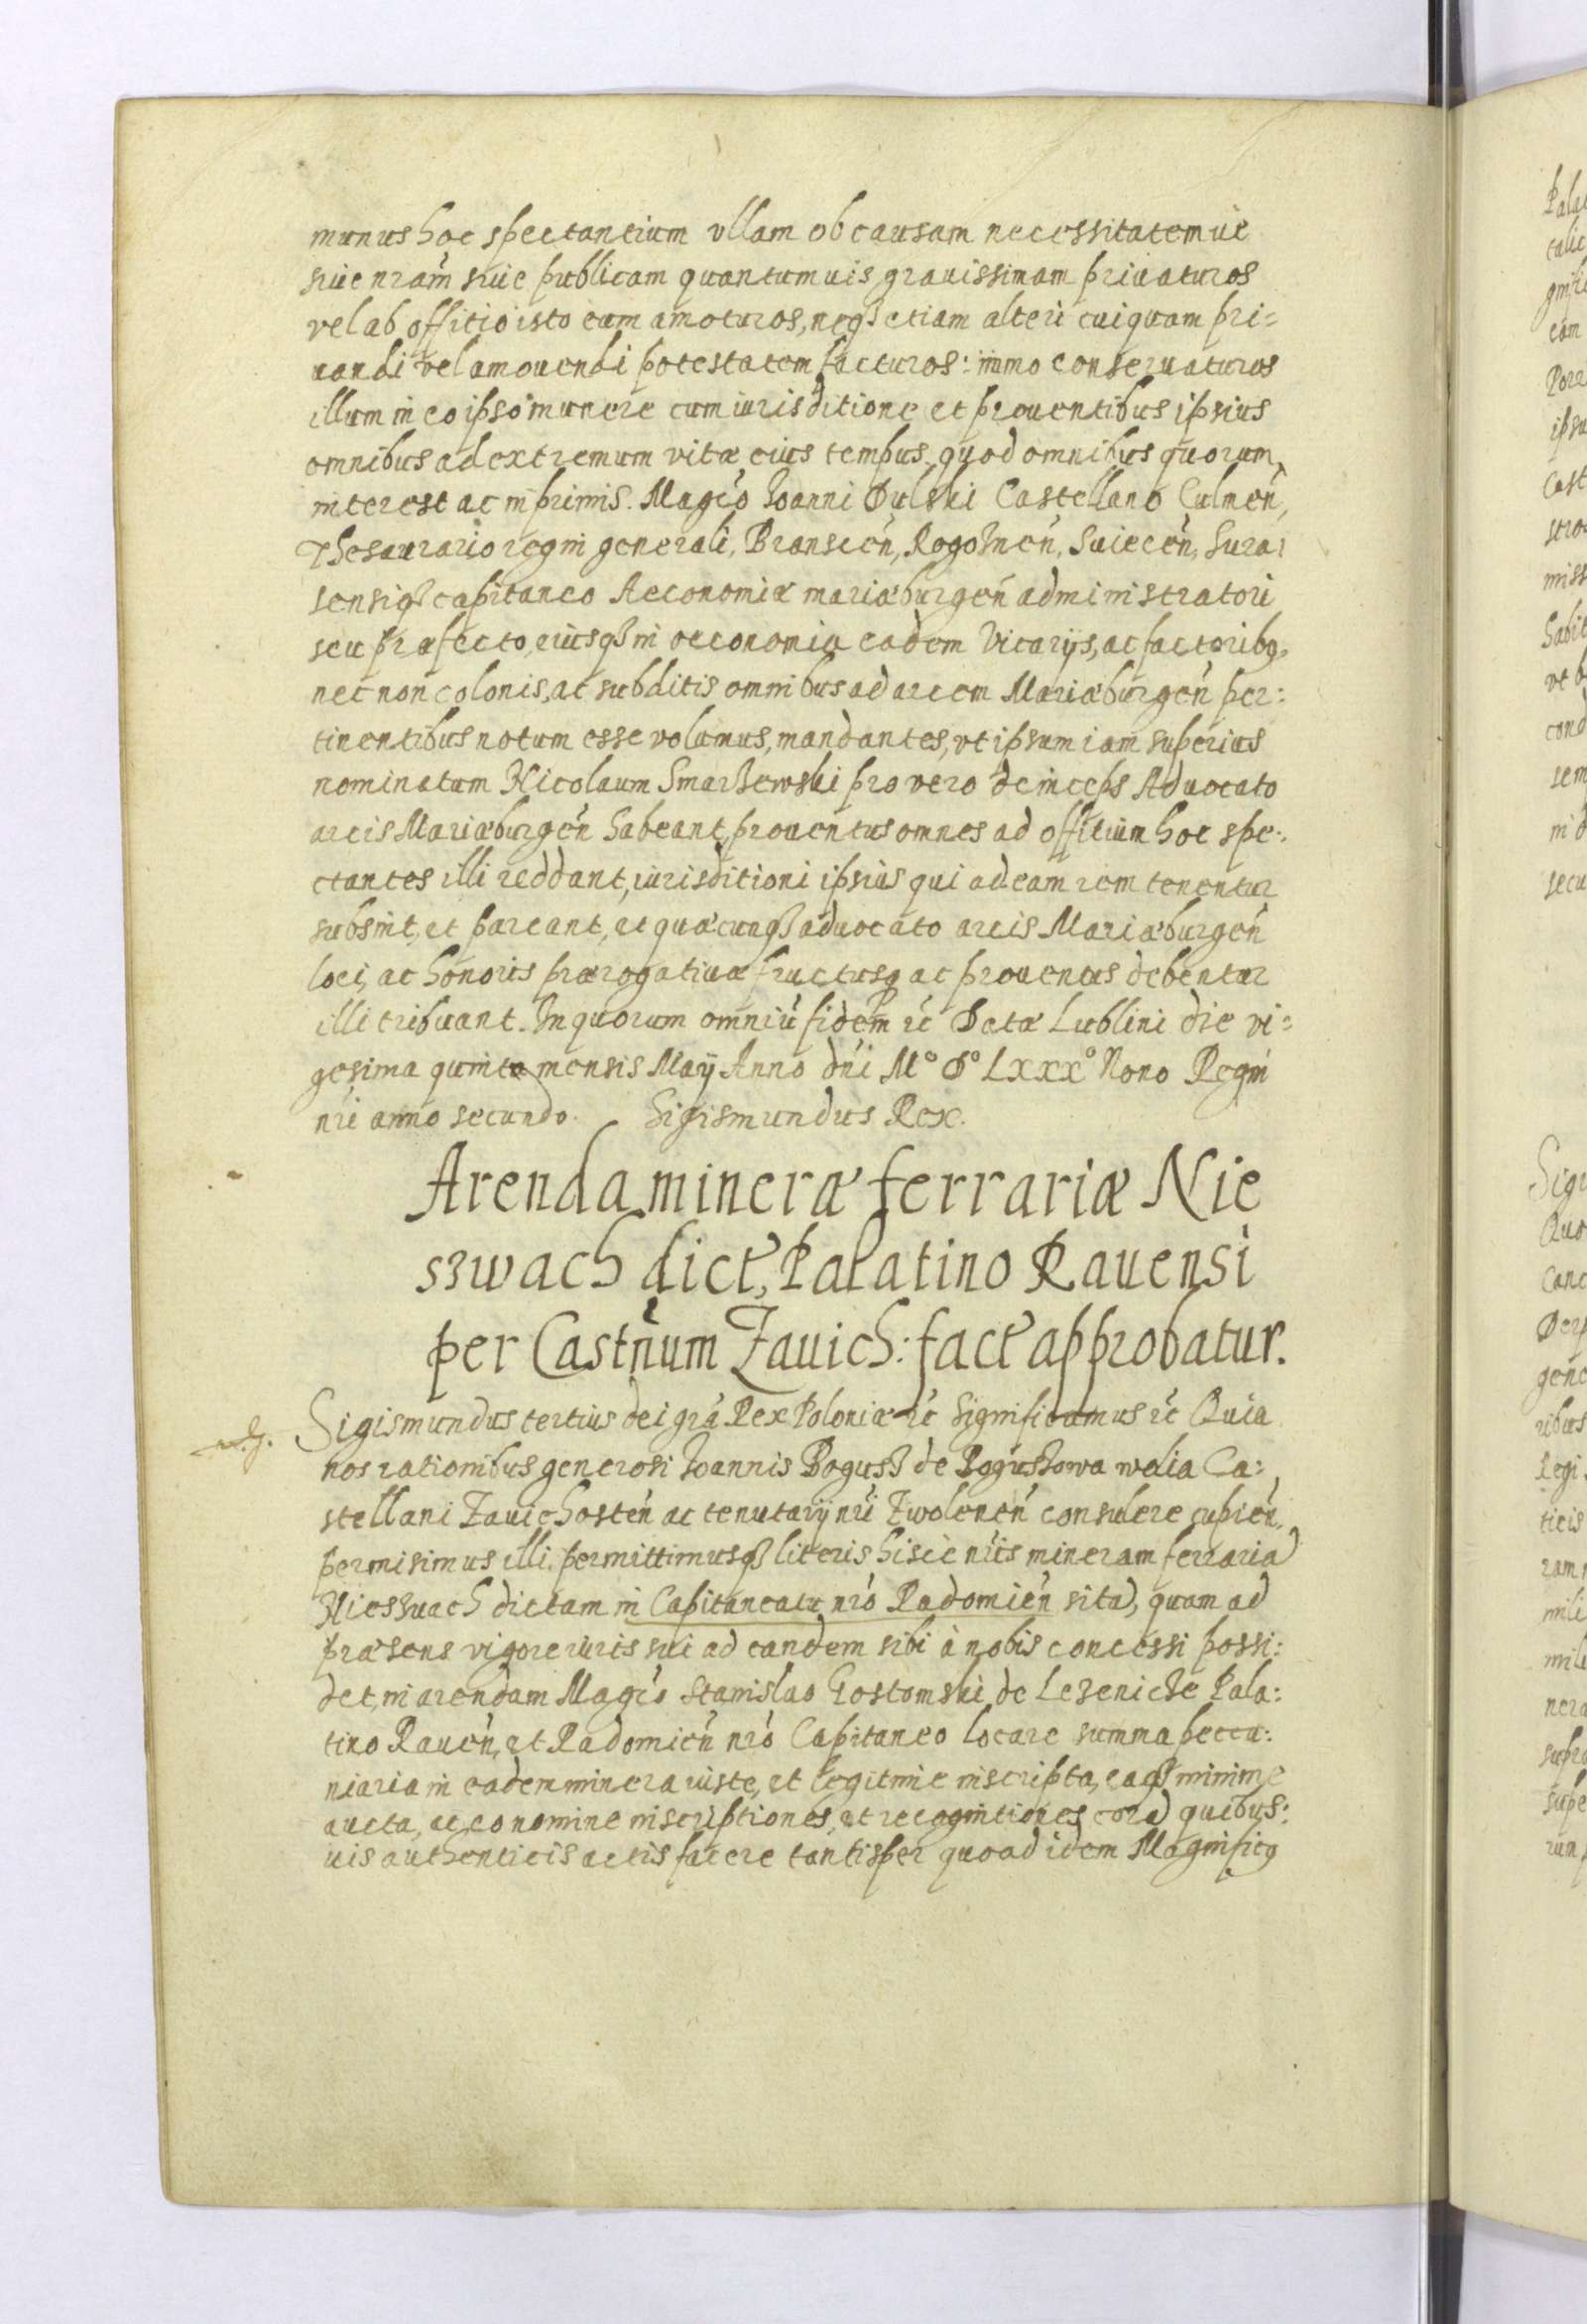 munus hoc spectantium vllam ob causam necessitatemue
siue nram̃ siue publicam quantumuis grauissimam priuaturos
vel ab offitio isto eum amoturos, neqз etiam alteri cuiquam pri=
uandi vel amouendi potestatem facturos: immo conseruaturos
illum in eo ipso munere cum iurisditione et prouentibus ipsius
omnibus ad extremum vitæ eius tempus. quod omnibus quorum
interest ac inprimis. Magcó Ioanni Dulski Castellano Culmeń,
Thesaurario regni generali, Bransceń, Rogoźneń, Suieceń, Sura:
sensiqз capitaneo Aeconomiæ mariæburgeń administratori
seu præfecto, eiusqз in oeconomia eadem Vicarijs, ac factoribq,
nec non colonis, ac subditis omnibus ad arcem Mariæburgeń per:
tinentibus notum esse volumus, mandantes, vt ipsum iam superius
nominatum Nicolaum Smarzewski pro vero deinceps Aduocato
arcis Mariæburgeń habeant, prouentus omnes ad offitium hoc spe:
ctantes illi reddant, iurisditioni ipsius qui ad eam rem tenentur
subsint, et pareant, et quæcunqз aduocato arcis Mariæburgeń
loci, ac honoris prærogatiuæ fructusq ac prouentus debentur
illi tribuant. In quorum omniú fidem ꝛć Datæ Lublini die vi=
gesima quinta mensis Maÿ Anno dńi M° D° Lxxx° Nono Regni
nŕi anno secundo. Sigismundus Rex.
Arenda mineræ ferrariæ Nie
szwach dict, Palatino Rauensi
per Castñum Zauich: fact approbatur.
Sigismundus tertius dei grá Rex Poloniæ ꝛć Significamus ꝛć Quia
nos rationibus generosi Ioannis Bogusz de Boguszowa wolia Ca:
stellani Zauichosteń ac tenutarij nŕi Zwoleneń consulere cupień,
permisimus illi. permittimusqз literis hisce nŕis mineram ferraria)
Niesswach dictam in Capitaneatu nró Radomień sita), quam ad
præsens vigore iuris sui ad eandem sibi à nobis concessi possi:
det, in arendam Magcó Stanislao Gostomski de Lezeniche Pala:
tino Raueń, et Radomień nró Capitaneo locare summa peccu:
niaria in eadem minera iuste, et legitime inscripta, eaqз minime
aucta, ac eo nomine inscriptiones, et recognitiones cora) quibus:
uis authenticis actis facere tantisper quoad idem Magnificq